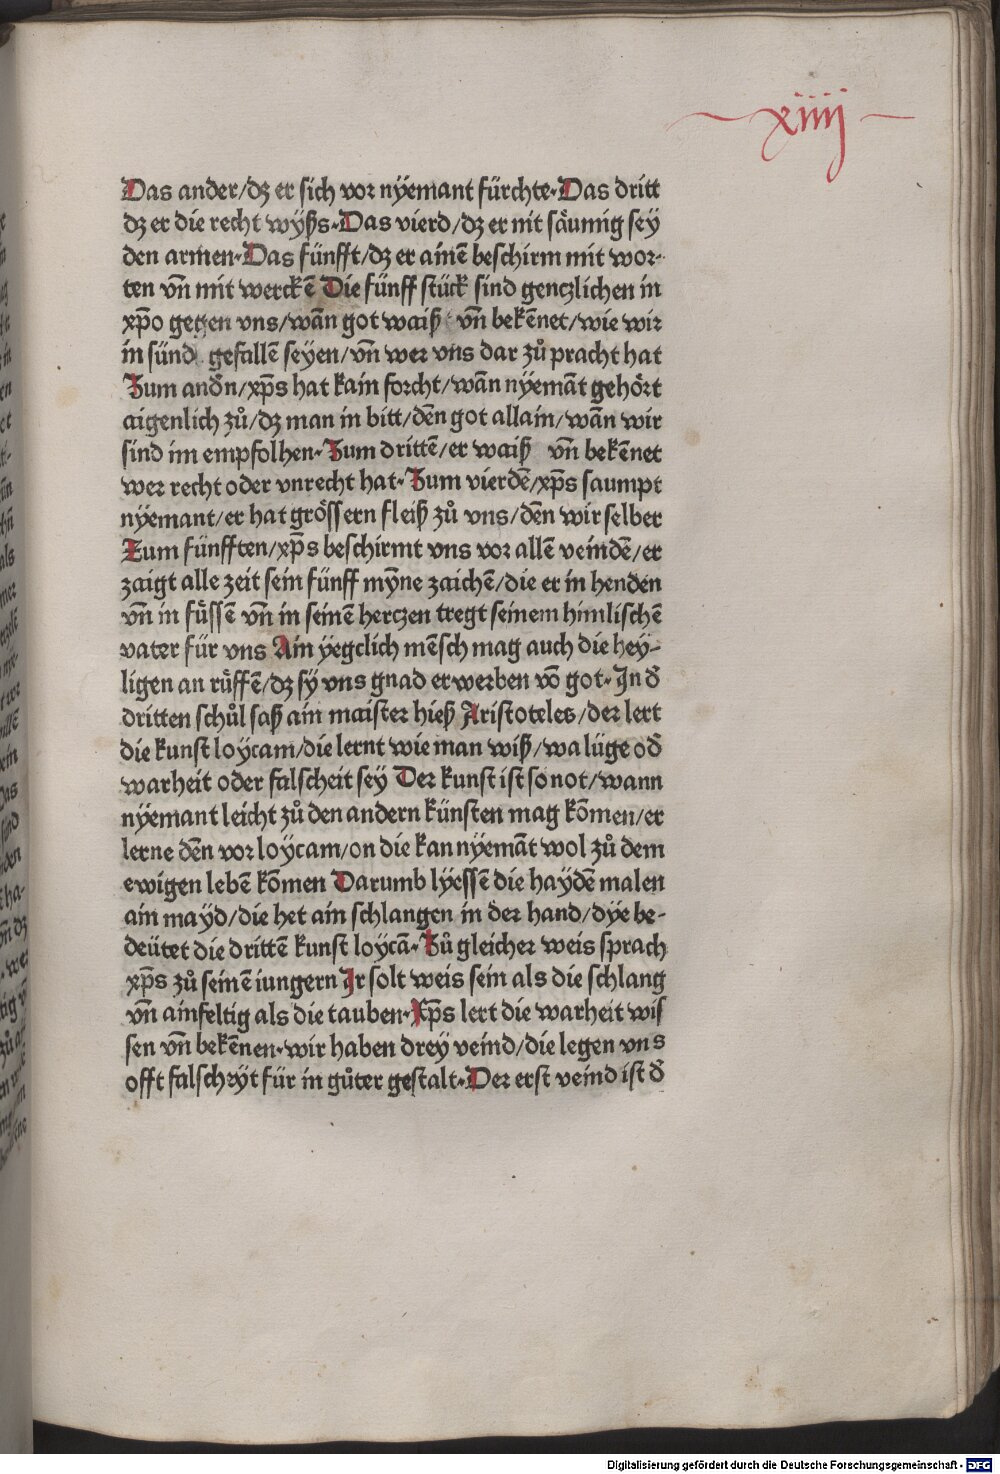 xiiij
Das ander/dz er sich vor nÿemant fürchte·Das dritt
dz er die recht wÿßs·Das vierd/dz er nit säumig sey
den armen·Das fünfft/dz er ainē beschirm mit wor-
ten vn̄ mit werckē Die fünff stück sind genczlichen in
xp̄o gegen vns/wān got waiß vn̄ bekēnet/wie wir
in sünd gefallē seyen/vn̄ wer vns dar zů pracht hat
Zum andn̄/xp̄s hat kain forcht/wān nÿemāt gehört
aigenlich zů/dz man in bitt/dēn got allain/wān wir
sind im empfolhen·Zum drittē/er waiß vn̄ bekēnet
wer recht oder vnrecht hat·Zum vierdē/xp̄s saumpt
nÿemant/er hat grössern fleiß zů vns/dēn wir selber
Zum fünfften/xp̄s beschirmt vns vor allē veindē/er
zaigt alle zeit sein fünff mȳne zaichē/die er in henden
vn̄ in füssē vn̄ in seinē herczen tregt seinem himlischē
vater für vns Ain ÿegclich mēsch mag auch die heÿ-
ligen an rüffē/dz sÿ vns gnad erwerben vō got·In d̄
dritten schůl saß ain maister hieß Aristoteles/der lert
die kunst loÿcam/die lernt wie man wiß/wa lüge od̄
warheit oder falscheit seÿ Der kunst ist so not/wann
nÿemant leicht zů den andern künsten mag kōmen/er
lerne dēn vor loÿcam/on die kan nÿemāt wol zů dem
ewigen lebē kōmen Darumb lÿessē die haÿdē malen
ain maÿd/die het ain schlangen in der hand/dÿe be-
deütet die drittē kunst loÿcā·Zů gleicher weis sprach
xp̄s zů seinē iungern Ir solt weis sein als die schlang
vn̄ ainfeltig als die tauben·Xp̄s lert die warheit wis
sen vn̄ bekēnen·wir haben dreÿ veind/die legen vns
offt falschzÿt für in gůter gestalt·Der erst veind ist d̄
Digitalisierung gefördert durch die Deutsche Forschungsgemeinschaft - DFG